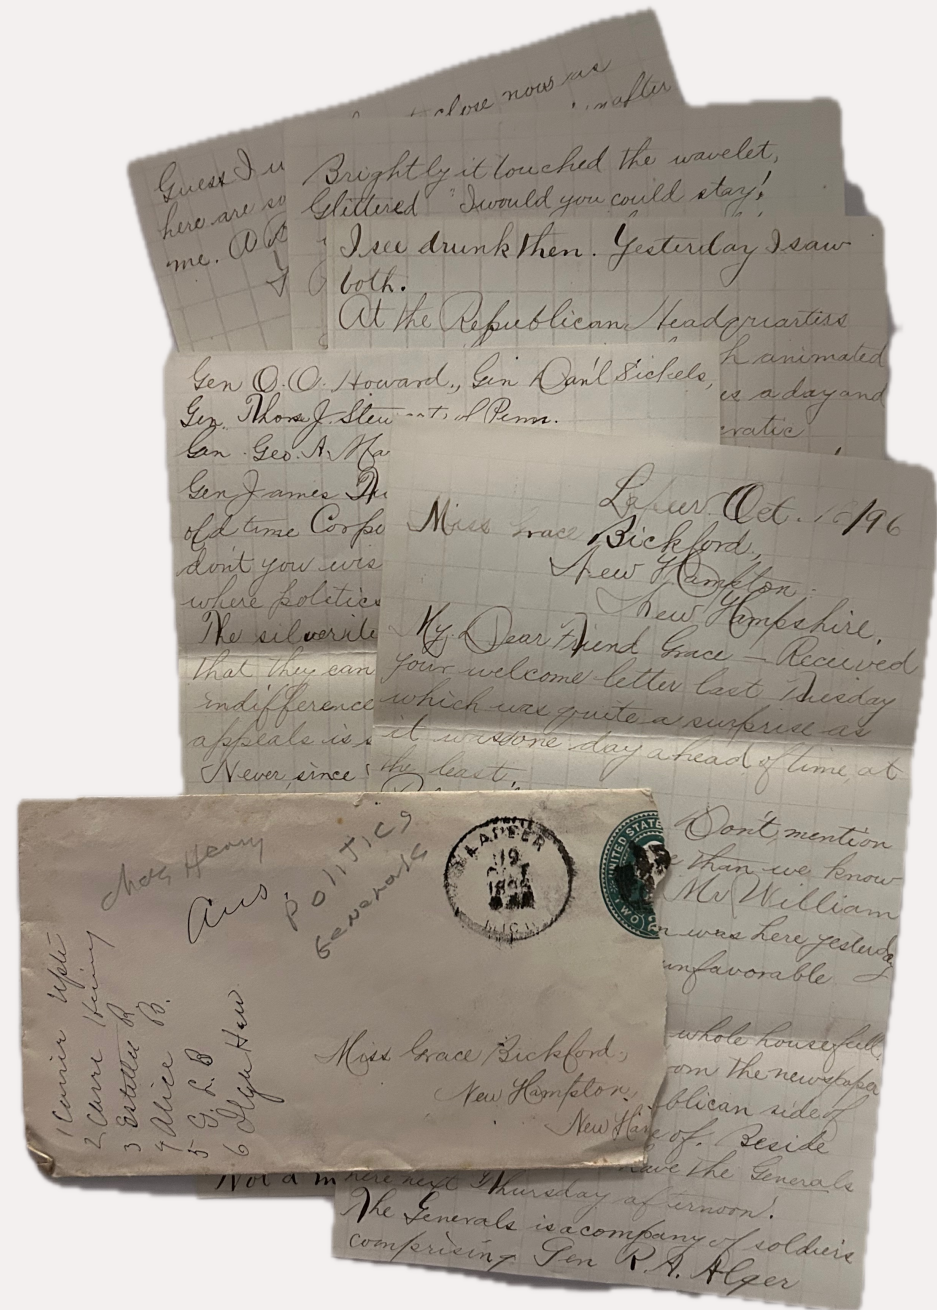 close now as
after
Guess I
here are so
me.
Brightly it touched the wavelet,
Glittered "I would you could stay!
I see drunk then. Yesterday I saw
both.
At the Republican Headquarters
animated
a day and
Gen O.O. Howard., Gin Dan'l Sickels,
Gen. Thom J. Stew of Penn.
Gen. Geo. A. Ma
Gen James
old time Corpo
don't you wis
where politics
The silverite
that they can
indifference
appeals is s
Never since
Lapeer Oct. 18/96
Miss Grace Bickford,
New Hampton.
New Hampshire.
My Dear Friend Grace — Received
your welcome letter last Tuesday
which was quite a surprise as
it was one day ahead of time, at
the least.
Don't mention
than we know
Mr William
was here yesterday
unfavorable
whole house full,
om the newspaper
blican side of
of. Beside
have the Generals
here next Thursday afternoon!
The Generals is a company of soldiers
comprising Gen R.A. Alger
Not a m
Chas Henry
Ans.
POLITICS
Generals
LAPEER
19
1896
MICH
UNITED STATES
TWO
Miss Grace Bickford,
New Hampton,
New Ham
1
2
3 Estella R.
4 Alice B.
5 G L B
6